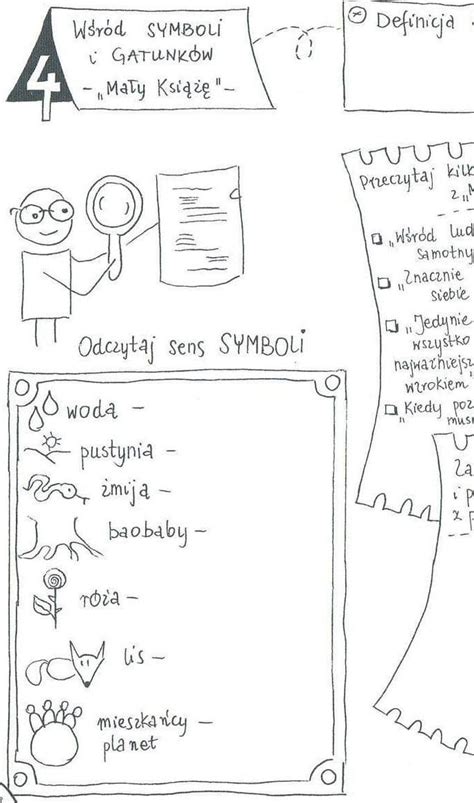 4
Wśród SYMBOLI
i GATUNKÓW
- „Mały Książę" -
Definicja
Przeczytaj kilk
z „M
„Wśród lud
samotny
„Znacznie
siebie
„Jedynie
wszystko
najważniejsz
wzrokiem
„Kiedy poz
mus
Za
i p
z p
Odczytaj sens SYMBOLI
woda –
pustynia –
żmija –
baobaby –
róża –
lis –
mieszkańcy –
planet